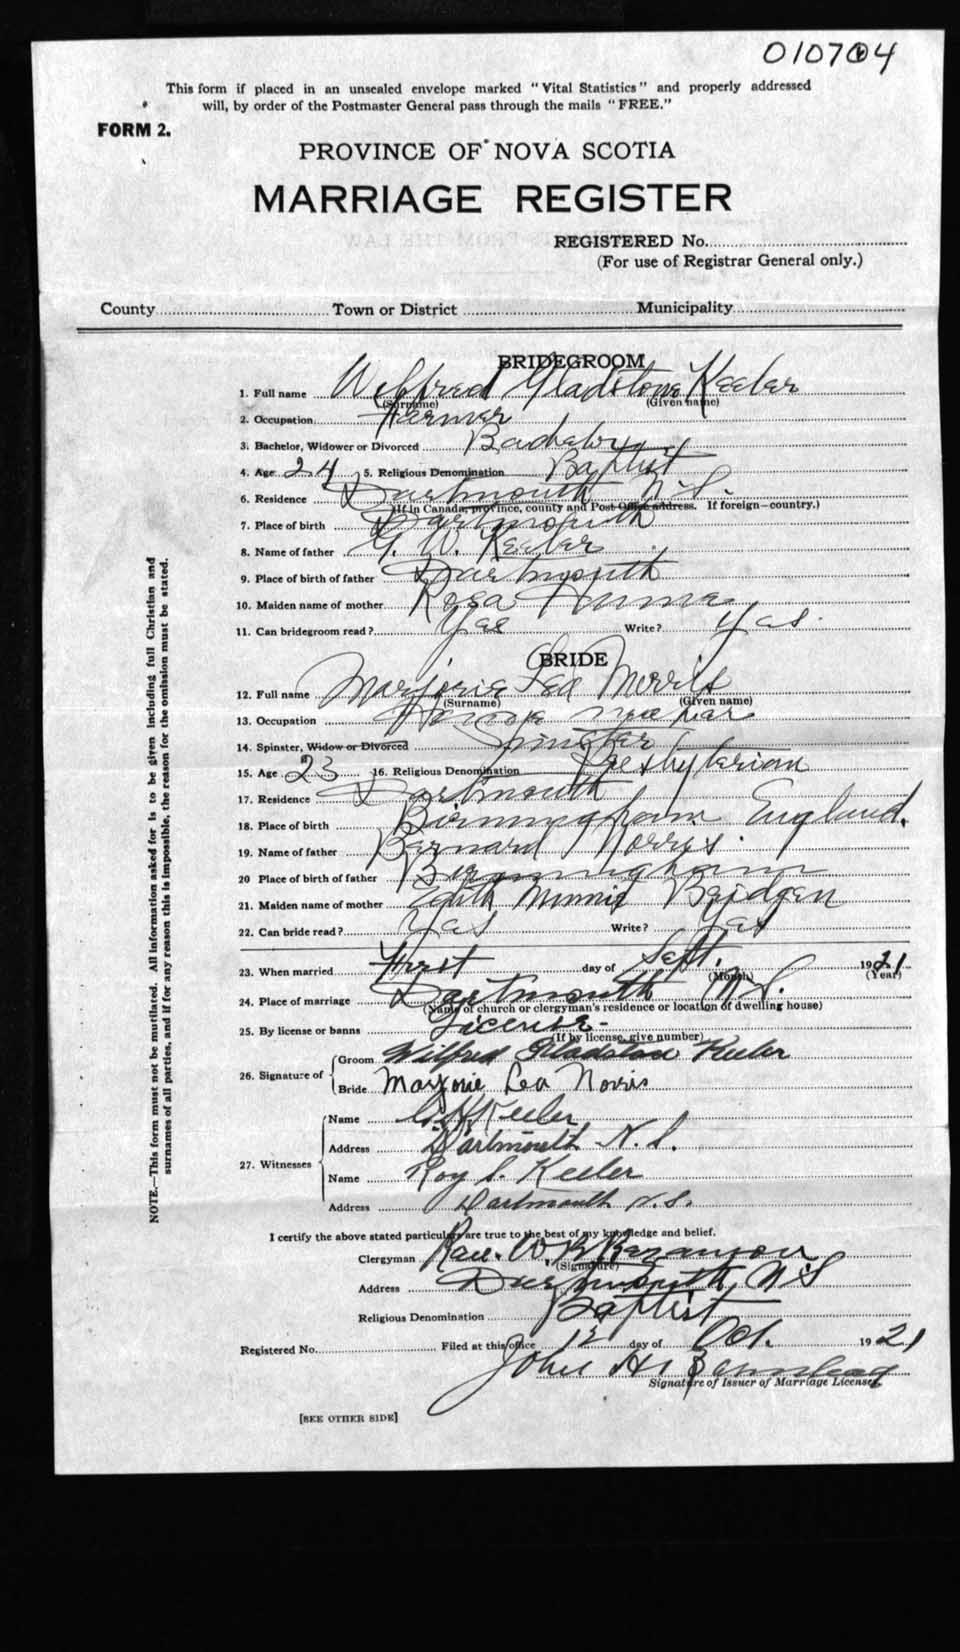 010704
This form if placed in an unsealed envelope marked "Vital Statistics" and properly addressed
will, by order of the Postmaster General pass through the mails "FREE."
FORM 2.
PROVINCE OF NOVA SCOTIA
MARRIAGE REGISTER
REGISTERED No.
(For use of Registrar General only.)
County Town or District Municipality
BRIDEGROOM
1. Full name Wilfred Gladstone Keeler
(Surname) (Given name)
2. Occupation Farmer
3. Bachelor, Widower or Divorced Bachelor
4. Age 24 5. Religious Denomination Baptist
6. Residence Dartmouth N.S.
(If in Canada, province, county and Post Office address. If foreign—country.)
7. Place of birth Dartmouth
8. Name of father G. W. Keeler
9. Place of birth of father Dartmouth
10. Maiden name of mother Rosa
11. Can bridegroom read? Yes Write? Yas.
BRIDE
12. Full name Marjorie Lea Norris
(Surname) (Given name)
13. Occupation
14. Spinster, Widow or Divorced Spinster
15. Age 23 16. Religious Denomination Presbyterian
17. Residence Dartmouth
18. Place of birth Birmingham England.
19. Name of father Bernard Norris.
20 Place of birth of father Birmingham
21. Maiden name of mother Edith Minnie Bridgen
22. Can bride read? Yas Write? Yas
23. When married First day of Sept. 1921
(Month) (Year)
24. Place of marriage Dartmouth N.S.
(Name of church or clergyman's residence or location of dwelling house)
25. By license or banns License-
(If by license, give number)
26. Signature of
Groom Wilfred Gladstone Keeler
Bride Marjorie Lea Norris
27. Witnesses
Name Keeler
Address Dartmouth N.S.
Name Roy S. Keeler
Address Dartmouth N.S.
I certify the above stated particulars are true to the best of my knowledge and belief.
Clergyman Rev. W. B. Bezanson
(Signature)
Address Dartmouth N.S
Religious Denomination Baptist
Registered No. Filed at this office 12 day of Oct. 1921
John H.
Signature of Issuer of Marriage Licenses
[SEE OTHER SIDE]
NOTE.—This form must not be mutilated. All information asked for is to be given including full Christian and
surnames of all parties, and if for any reason this is impossible, the reason for the omission must be stated.